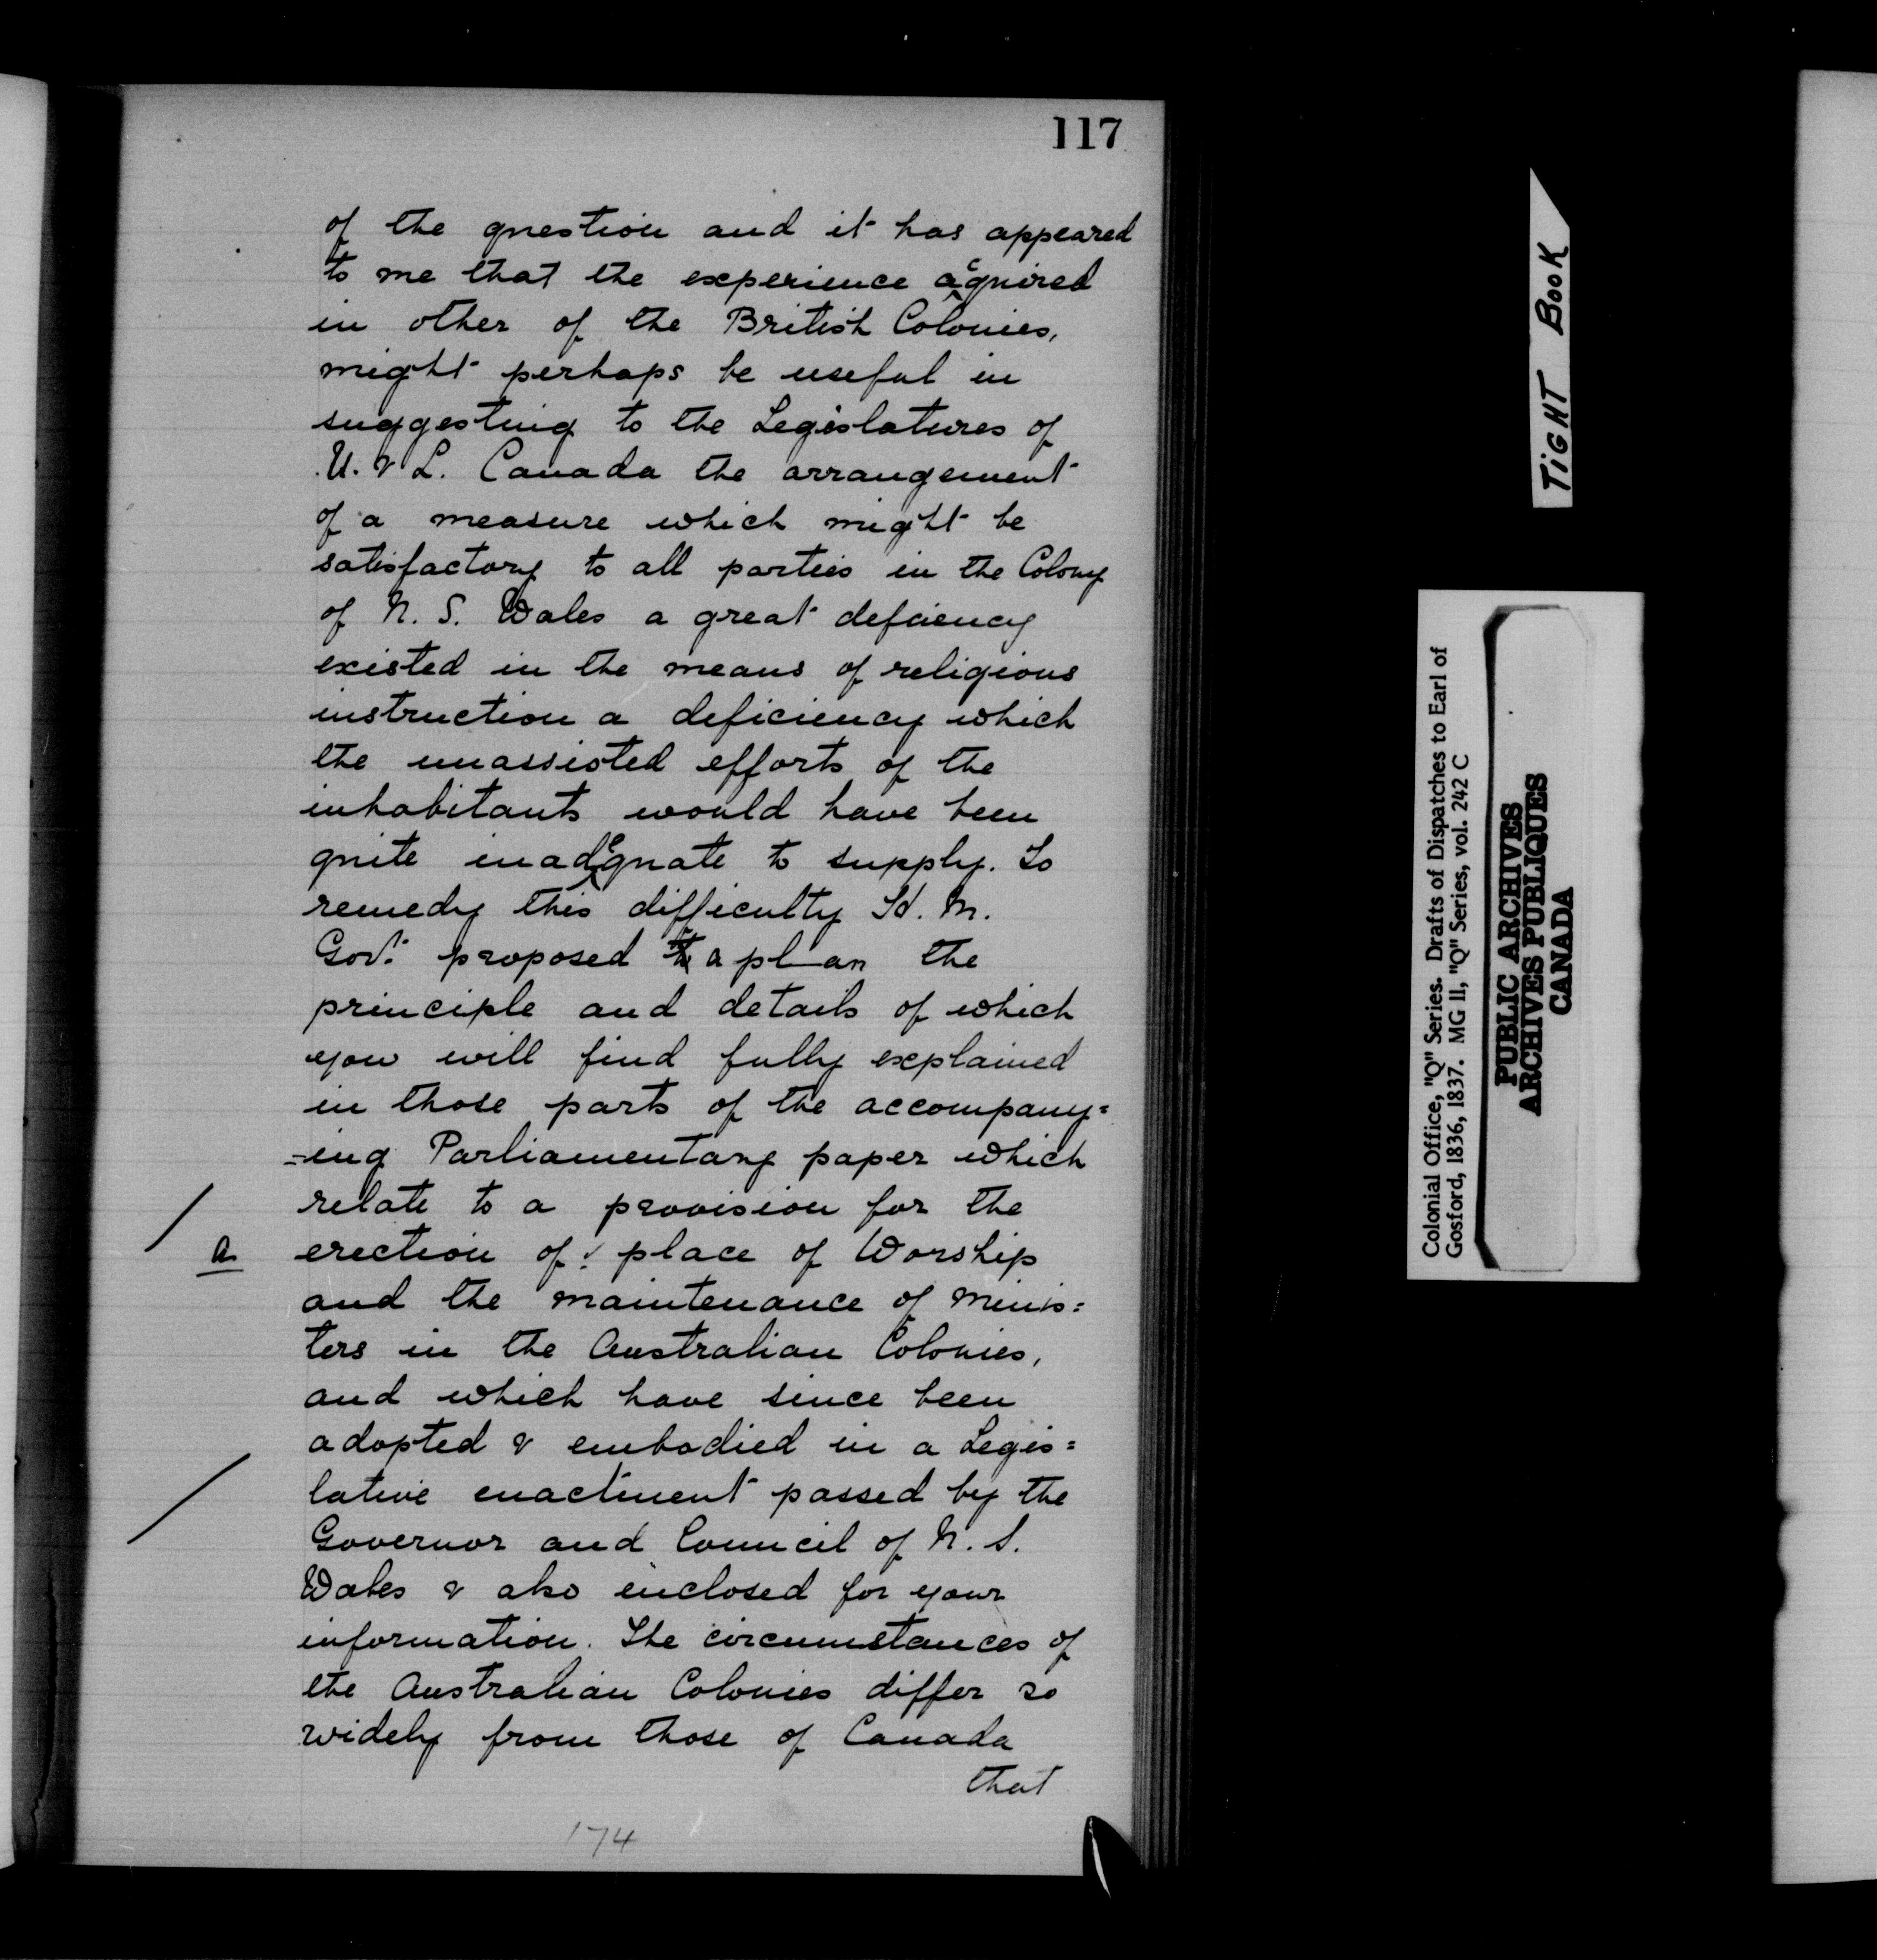 117
of the question and it has appeared
to me that the experience acquired
in other of the British Colonies,
might perhaps be useful in
suggesting to the Legislatures of
U. & L. Canada the arrangement
of a measure which might be
satisfactory to all parties in the Colony
of N. S. Wales a great deficiency
existed in the means of religious
instruction a deficiency which
the unassisted efforts of the
inhabitants would have been
quite inadequate to supply. To
remedy this difficulty H. M.
Govt. proposed a plan the
principle and details of which
you will find fully explained
in those parts of the accompany=
=ing Parliamentary paper which
relate to a provision for the
a erection of place of Worship
and the maintenance of Minis=
ters in the Australian Colonies,
and which have since been
adopted & embodied in a Legis=
lative enactment passed by the
Governor and Council of N. S.
Wales & also enclosed for your
information. The circumstances of
the Australian Colonies differ so
widely from those of Canada
that
174
TIGHT BOOK
Colonial Office, "Q" Series. Drafts of Dispatches to Earl of
Gosford, 1836, 1837. MG 11, "Q" Series, vol. 242 C
PUBLIC ARCHIVES
ARCHIVES PUBLIQUES
CANADA